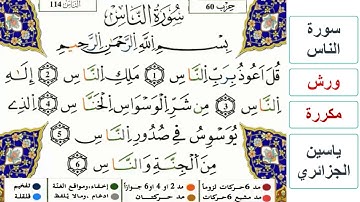 الناس 114
حزب 60
سُورَةُ النَّاسِ
بِسْمِ اللَّهِ الرَّحْمَٰنِ الرَّحِيمِ
قُلَ اَعُوذُ بِرَبِّ النَّاسِ 1 مَلِكِ النَّاسِ 2 إِلَٰهِ
النَّاسِ 3 مِن شَرِّ الْوَسْوَاسِ الْخَنَّاسِ 4 الذِے
يُوَسْوِسُ فِے صُدُورِ النَّاسِ 5
مِنَ الْجِنَّةِ وَالنَّاسِ 6
سورة
الناس
ورش
مكررة
ياسين
الجزائري
مد 6 حركات لزوما
مد 2 او 4 او 6 جوازا
إخفاء، ومواقع الغنة
تفخيم
مد مشبع 6 حركات
مد حركتان
ادغام، ومالا يلفظ
قلقلة